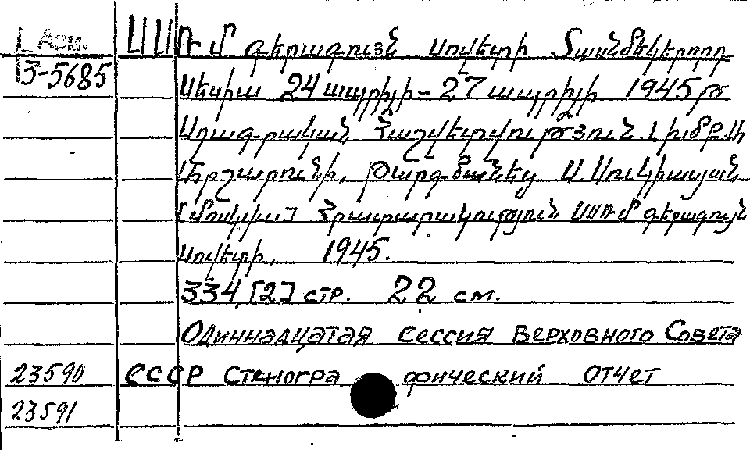 Арм. ՍՍՌՄ գերագույն սովետի տասնմեկերորդ
3-5685 սեսիա 24 ապրիլի - 27 ապրիլի 1945 թ
սղագրական հաշվետվություն.
թարգմանեց Ս. Սուկիասյան.
[Մոսկվա] հրատարակություն ՍՍՌՄ գերագույն
սովետի, 1945.
334, [2] стр. 22 см.
Одиннадцатая сессия Верховного Совета
23590 СССР Стенографический отчет
23591